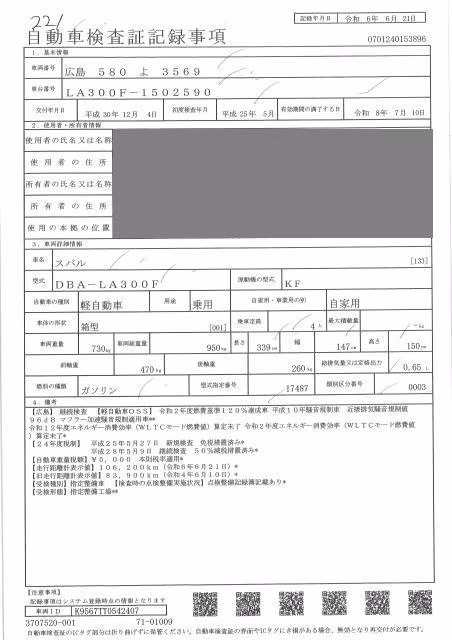 221
記録年月日 令和 6年 6月 21日
自動車検査証記録事項 0701240153896
1．基本情報
車両番号 広島 580 よ 3569
車台番号 LA300F-1502590
交付年月日 平成 30年 12月 4日 初度検査年月 平成 25年 5月 有効期間の満了する日 令和 8年 7月 10日
2．使用者・所有者情報
使用者の氏名又は名称
使用者の住所
所有者の氏名又は名称
所有者の住所
使用の本拠の位置
3．車両詳細情報
車名 スバル [133]
型式 DBA-LA300F 原動機の型式 KF
自動車の種別 軽自動車 用途 乗用 自家用・事業用の別 自家用
車体の形状 箱型 [001] 乗車定員 4人 最大積載量 -kg
車両重量 730kg 車両総重量 950kg 長さ 339cm 幅 147cm 高さ 150cm
前軸重 470kg 後軸重 260kg 総排気量又は定格出力 0.65 L
燃料の種類 ガソリン 型式指定番号 17487 類別区分番号 0003
4．備考
【広島】 継続検査 【軽自動車OSS】 令和2年度燃費基準120%達成車 平成10年騒音規制車 近接排気騒音規制値
96dB マフラー加速騒音規制適用車**
令和12年度エネルギー消費効率（WLTCモード燃費値）算定未了 令和2年度エネルギー消費効率（WLTCモード燃費値
）算定未了*
【24年度税制】 平成25年5月27日 新規検査 免税措置済み*
平成28年5月9日 継続検査 50%減税措置済み*
【自動車重量税額】￥5,000 本則税率適用*
【走行距離計表示値】106,200km（令和6年6月21日）*
【旧走行距離計表示値】83,900km（令和4年6月10日）*
【受検種別】指定整備車 【検査時の点検整備実施状況】点検整備記録簿記載あり*
【受検形態】指定整備工場**
【注意事項】
記録事項はシステム登録時点の情報となります
車両ID K9567TT0542407
3707520-001 71-01009
自動車検査証のICタグ部分は折り曲げずに保管ください。自動車検査証の券面やICタグに き損がある場合、無効となり再交付が必要です。